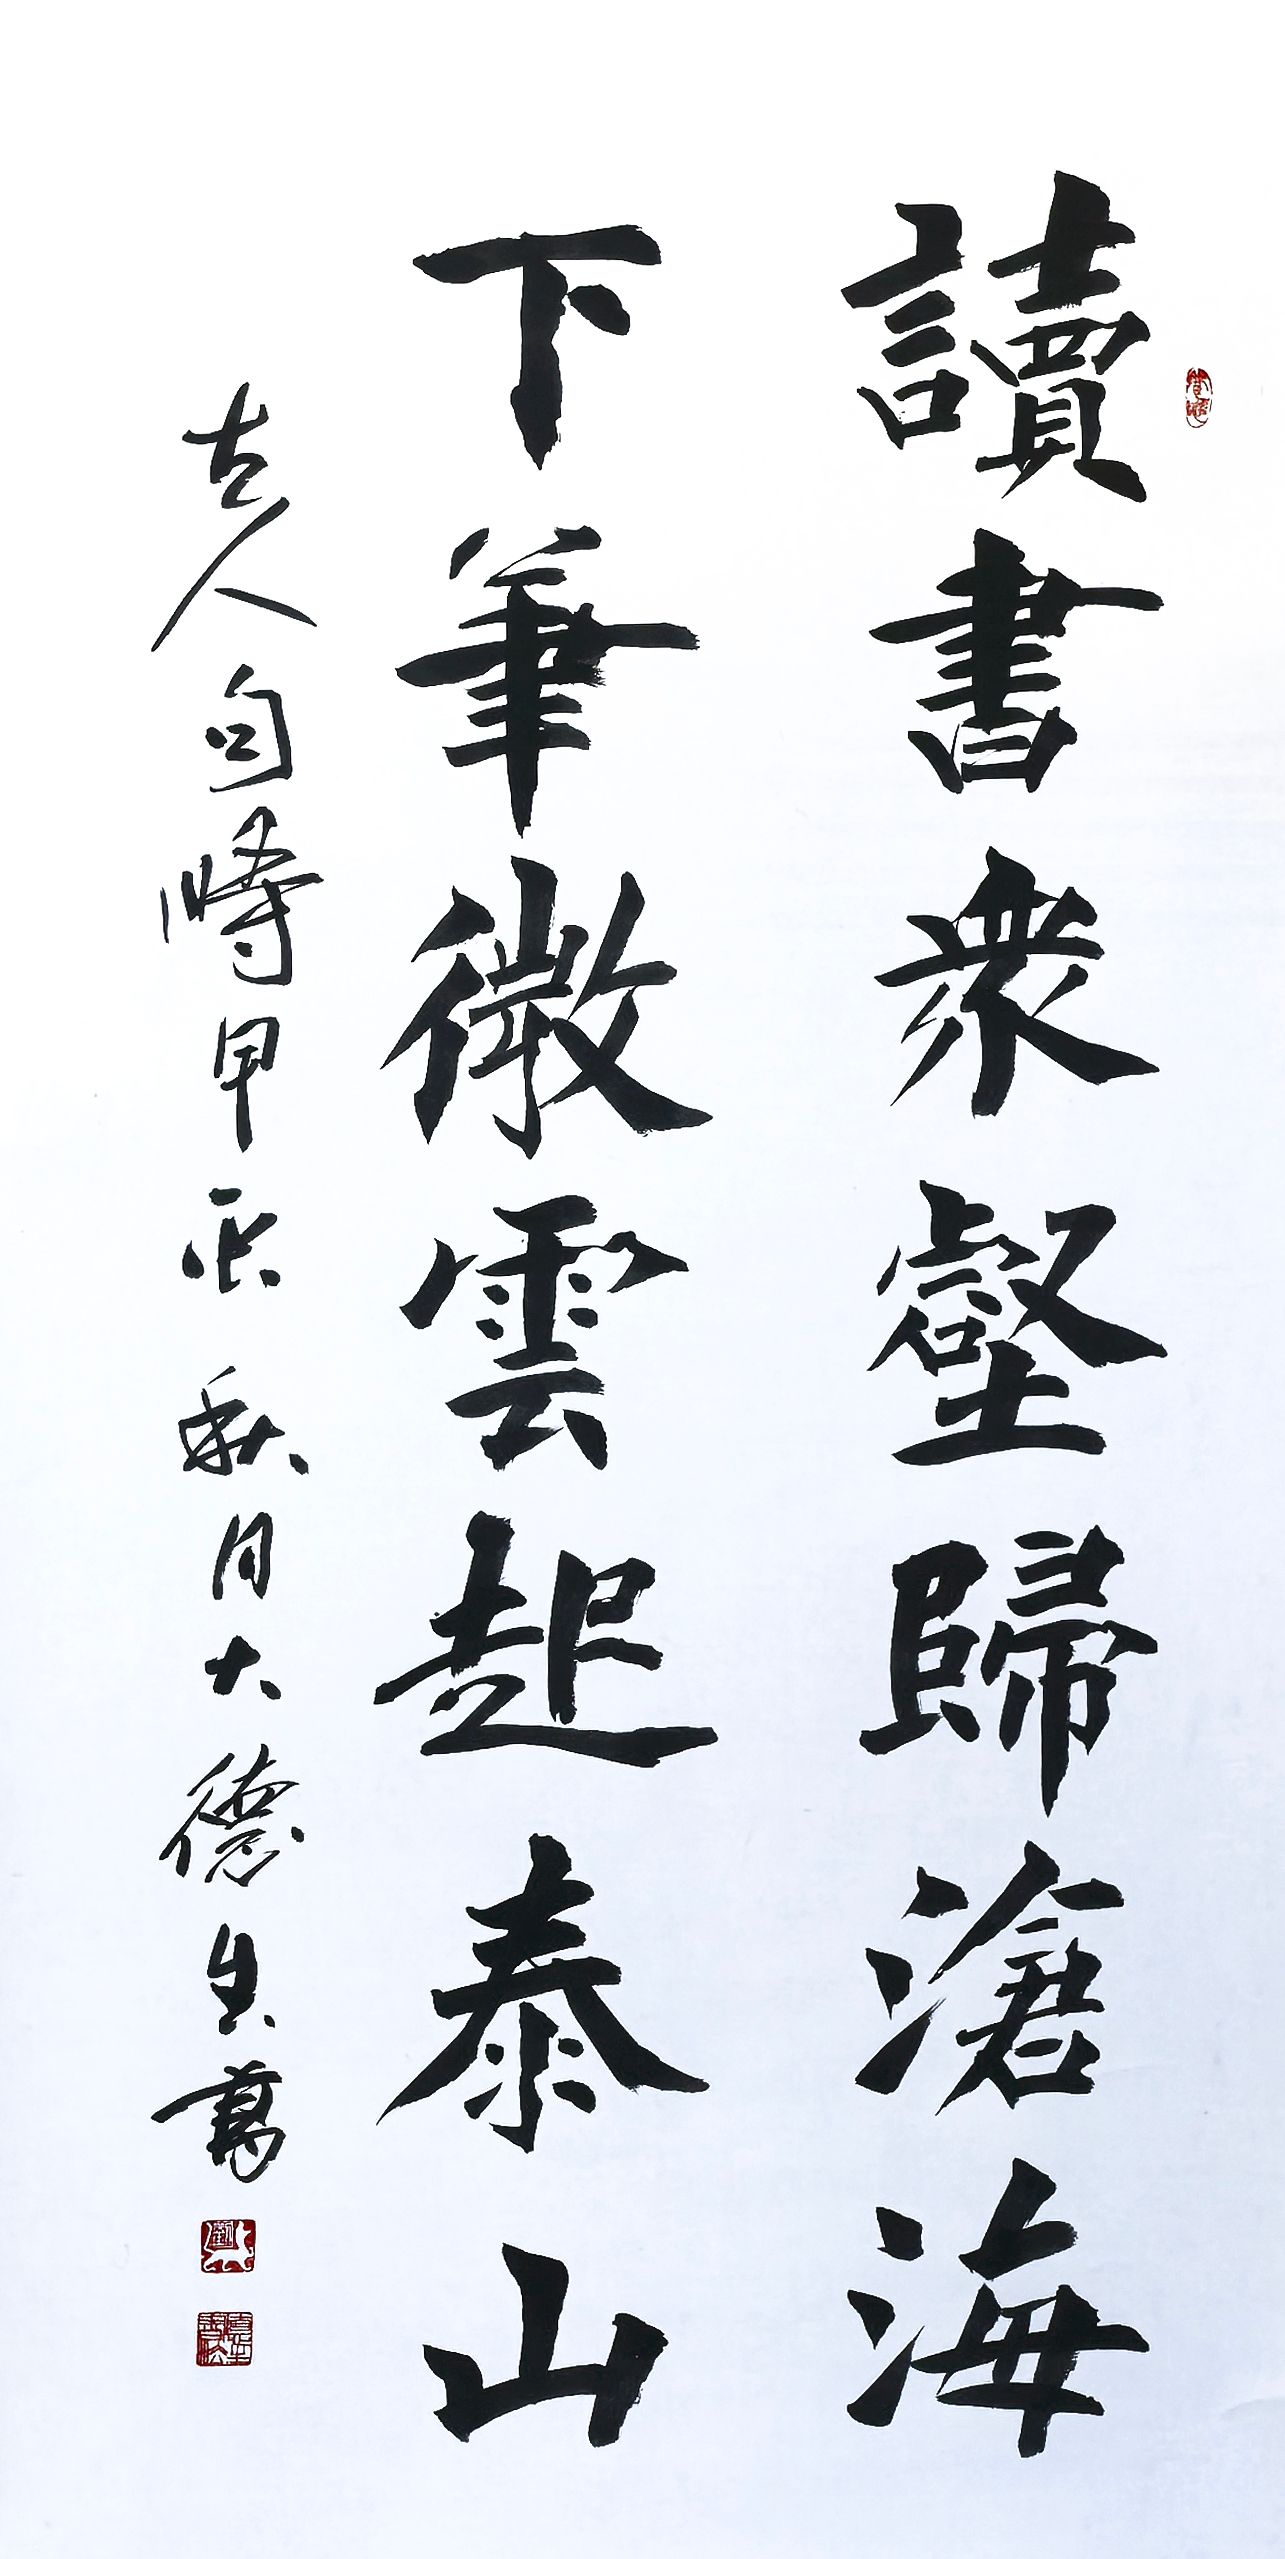 讀書衆壑歸滄海
下筆微雲起泰山
古人句時甲辰秋月大德